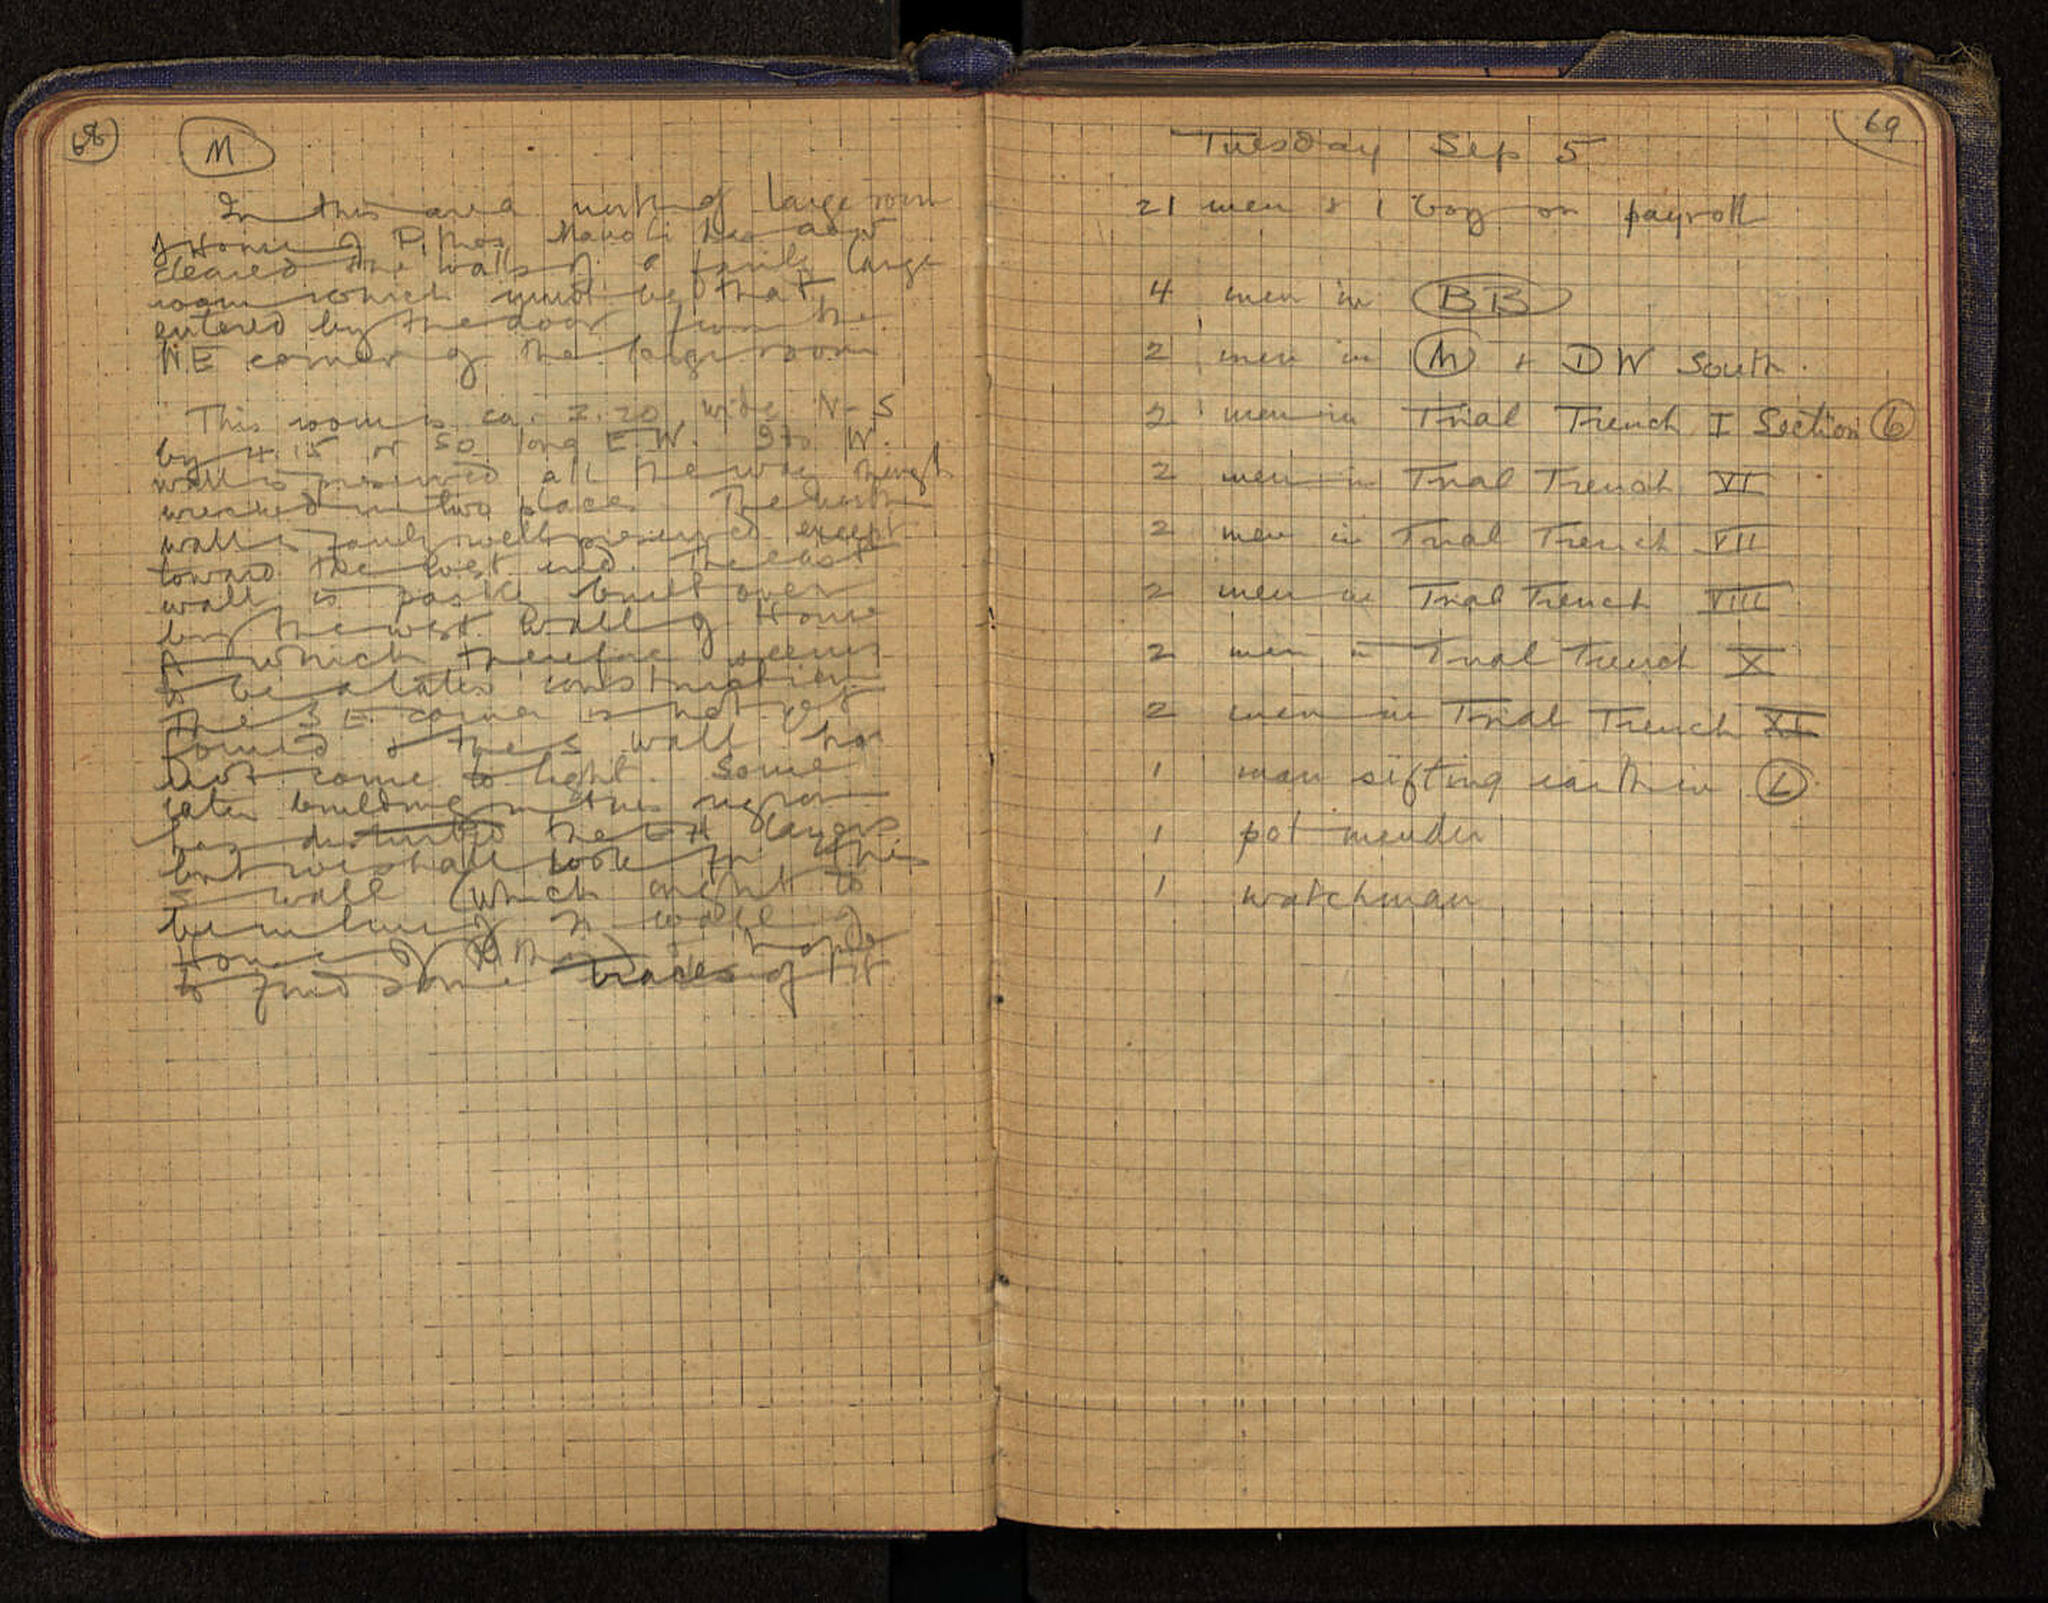 68
M
In this area north of large room
of House of Pithos Manoli has now
cleared the walls of a fairly large
room which must be that
entered by the door from the
NE corner of the large room
This room is ca. 2.20 wide N-S
by 4.15 or 50 long E.W. Its W.
wall is preserved all the way though
wrecked in two places. The north
wall is fairly well preserved except
toward the west end. The east
wall is partly built over
by the west wall of House
A which therefore seems
to be a later construction
The S E corner is not yet
found & the S wall has
not come to light. Some
later building in this region
has disturbed the EH layers
but we shall look for this
S wall (which ought to
be in line of N wall of
House of Pithos) & hope
to find some traces of it
69
Tuesday Sep 5
21 men & 1 boy on payroll
4 men in BB
2 men in M + DW South.
2 men in Trial Trench I Section 6
2 men in Trial Trench VI
2 men in Trial Trench VII
2 men in Trial Trench VIII
2 men in Trial Trench X
2 men in Trial Trench XI
1 man sifting earth in L
1 pot mender
1 watchman